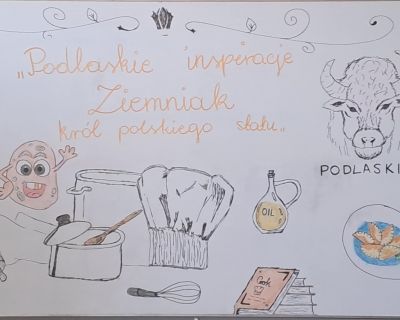 „Podlaskie inspiracje
Ziemniak
król polskiego stołu„
PODLASKI
OIL
Cook